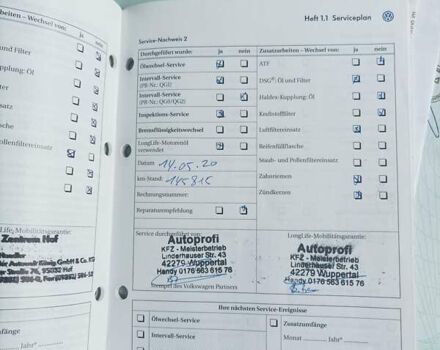 Heft 1.1 Serviceplan
Service-Nachweis 2
Durchgeführt wurde: ja nein
Ölwechsel-Service
Intervall-Service
(PR-Nr.: QG1)
Intervall-Service
(PR-Nr.: QG0/QG2)
Inspektions-Service
Bremsflüssigkeitswechsel
LongLife-Motorenöl
verwendet
Datum 14.05.20
km-Stand: 145815
Rechnungsnummer:
Reparaturempfehlung
Zusatzarbeiten – Wechsel von: ja nein
ATF
DSG® Öl und Filter
Haldex-Kupplung: Öl
Kraftstofffilter
Luftfiltereinsatz
Reifenfüllflasche
Staub- und Pollenfiltereinsatz
Zahnriemen
Zündkerzen
Service durchgeführt von:
Autoprofi
KFZ - Meisterbetrieb
Linderhauser Str. 43
42279 Wuppertal
Handy 0176 563 615 76
Stempel des Volkswagen Partners
LongLife-Mobilitätsgarantie:
Autoprofi
KFZ - Meisterbetrieb
Linderhauser Str. 43
42279 Wuppertal
Handy 0176 563 615 76
Ihre nächsten Service-Ereignisse
Ölwechsel-Service
Intervall-Service
Zusatzumfänge
Jahr*
eiten – Wechsel von:
ja nein
und Filter
upplung: Öl
filter
insatz
lasche
ollenfiltereinsatz
Life-Mobilitätsgarantie:
Zentrum Hof
95032 Hof
umfänge
Jahr*